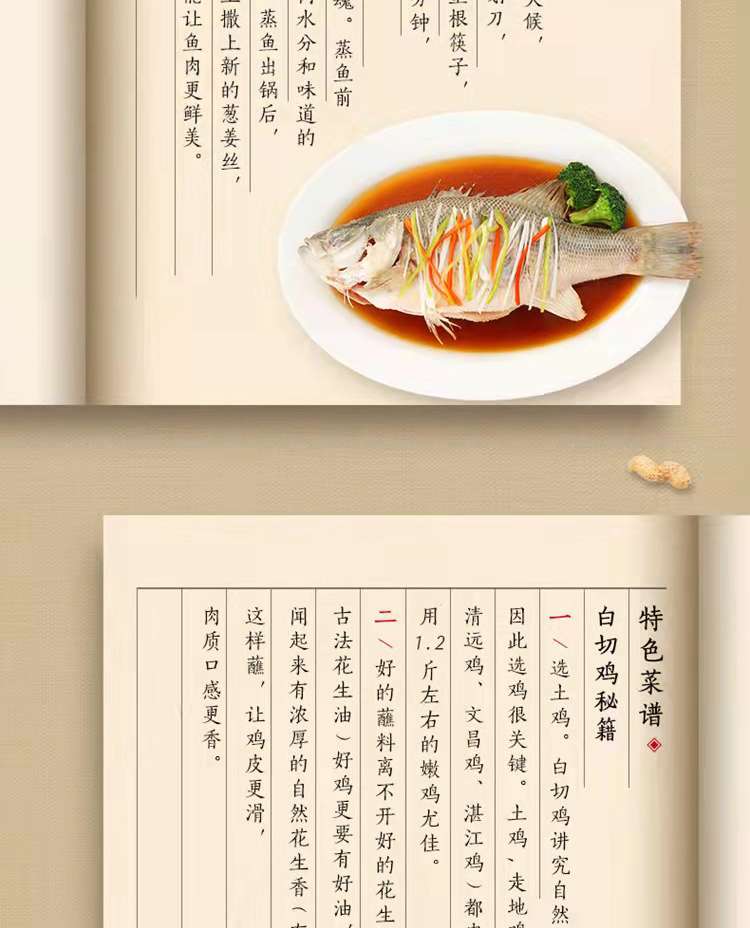 候，
刀，
根筷子，
分钟，
魂。蒸鱼前
水分和味道的
蒸鱼出锅后，
撒上新的葱姜丝，
能让鱼肉更鲜美。
特色菜谱
白切鸡秘籍
一\选土鸡。白切鸡讲究自然
因此选鸡很关键。土鸡、走地鸡
清远鸡、文昌鸡、湛江鸡）都
用1.2斤左右的嫩鸡尤佳。
二\好的蘸料离不开好的花生
古法花生油）好鸡更要有好油（
闻起来有浓厚的自然花生香（
这样蘸，让鸡皮更滑，
肉质口感更香。